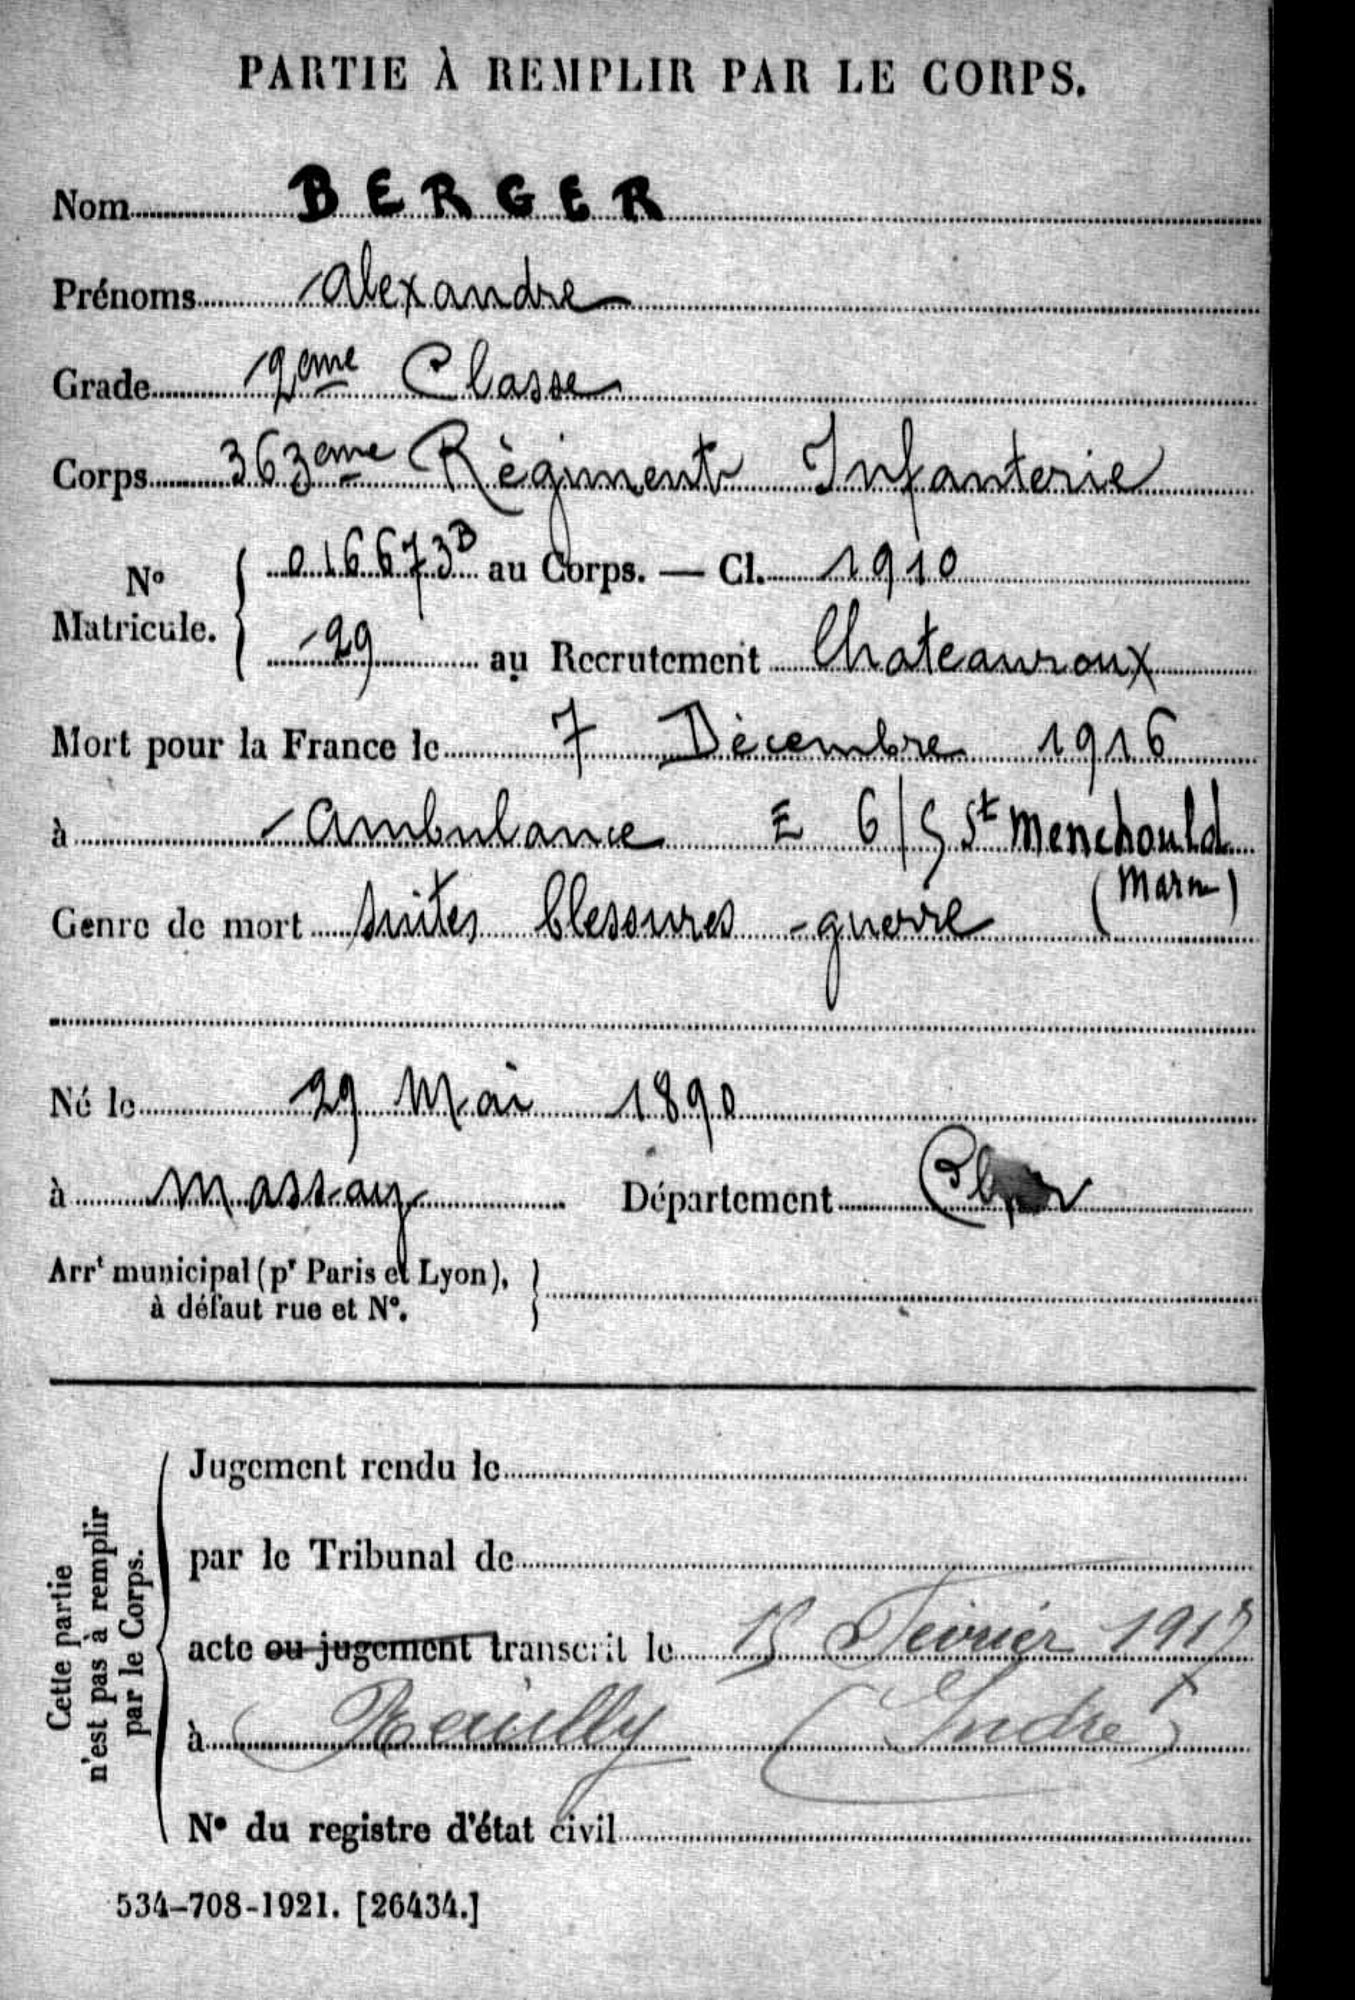 PARTIE À REMPLIR PAR LE CORPS.
Nom BERGER
Prénoms Alexandre
Grade 2eme Classe
Corps 363eme Règiment Infanterie
N° Matricule. 016673B au Corps. — Cl. 1910
29 au Recrutement Chateauroux
Mort pour la France le 7 Dècembre 1916
à Ambulance E 6/5 St Menehould
(Marne)
Genre de mort suites blessures guerre
Né le 29 Mai 1890
à Massay Département
Arrt municipal (pr Paris et Lyon),
à défaut rue et N°.
Cette partie n'est pas à remplir par le Corps.
Jugement rendu le
par le Tribunal de
acte ou jugement transcrit le 15 Février 1917
à Reuilly (Indre)
N° du registre d'état civil
534-708-1921. [26434.]